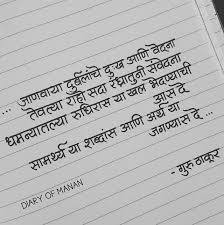 ... जाणवाया दुर्बलांचे दुःख आणि वेदना
तेवत्या राहो सदा रंध्रातुनी संवेदना
धमन्यातल्या रुधिरास या खल भेदण्याची
आस दे
सामर्थ्य या शब्दांस आणि अर्थ या
जगण्यास दे ...
- गुरु ठाकूर
DIARY OF MANAN